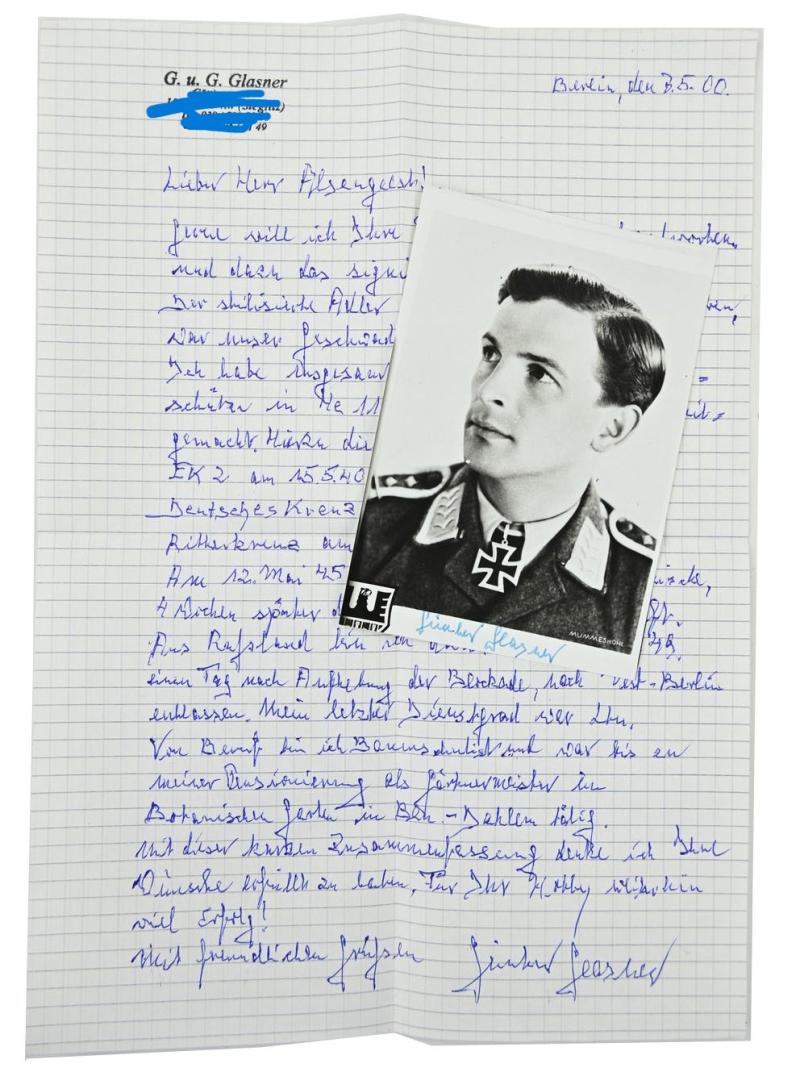 G. u. G. Glasner
49
Berlin, den 3.5.00.
Lieber Herr
gern will ich Ihre
und auch das signi
Der stilisierte Adler
war unser Geschwad
Ich habe insgesamt
schützen in He 11
gemacht. Hierzu die
EK 2 am 15.5.40
Deutsches Kreuz
Ritterkreuz am
Am 12. Mai 45
4 Wochen später
Aus Rußland bin ich 49.
einen Tag nach Aufhebung der Blockade, nach West-Berlin
entlassen. Mein letzter Dienstgrad war Ltn.
Von Beruf bin ich Baumschulist und war bis zu
meiner Pensionierung als Gärtnermeister im
Botanischen Garten in Bln-Dahlem tätig.
Mit dieser kurzen Zusammenfassung denke ich Ihre
Wünsche erfüllt zu haben. Für Ihr Hobby weiterhin
viel Erfolg!
Mit freundlichen Grüßen Günter Glasner
Günter Glasner
MUMMESOHL